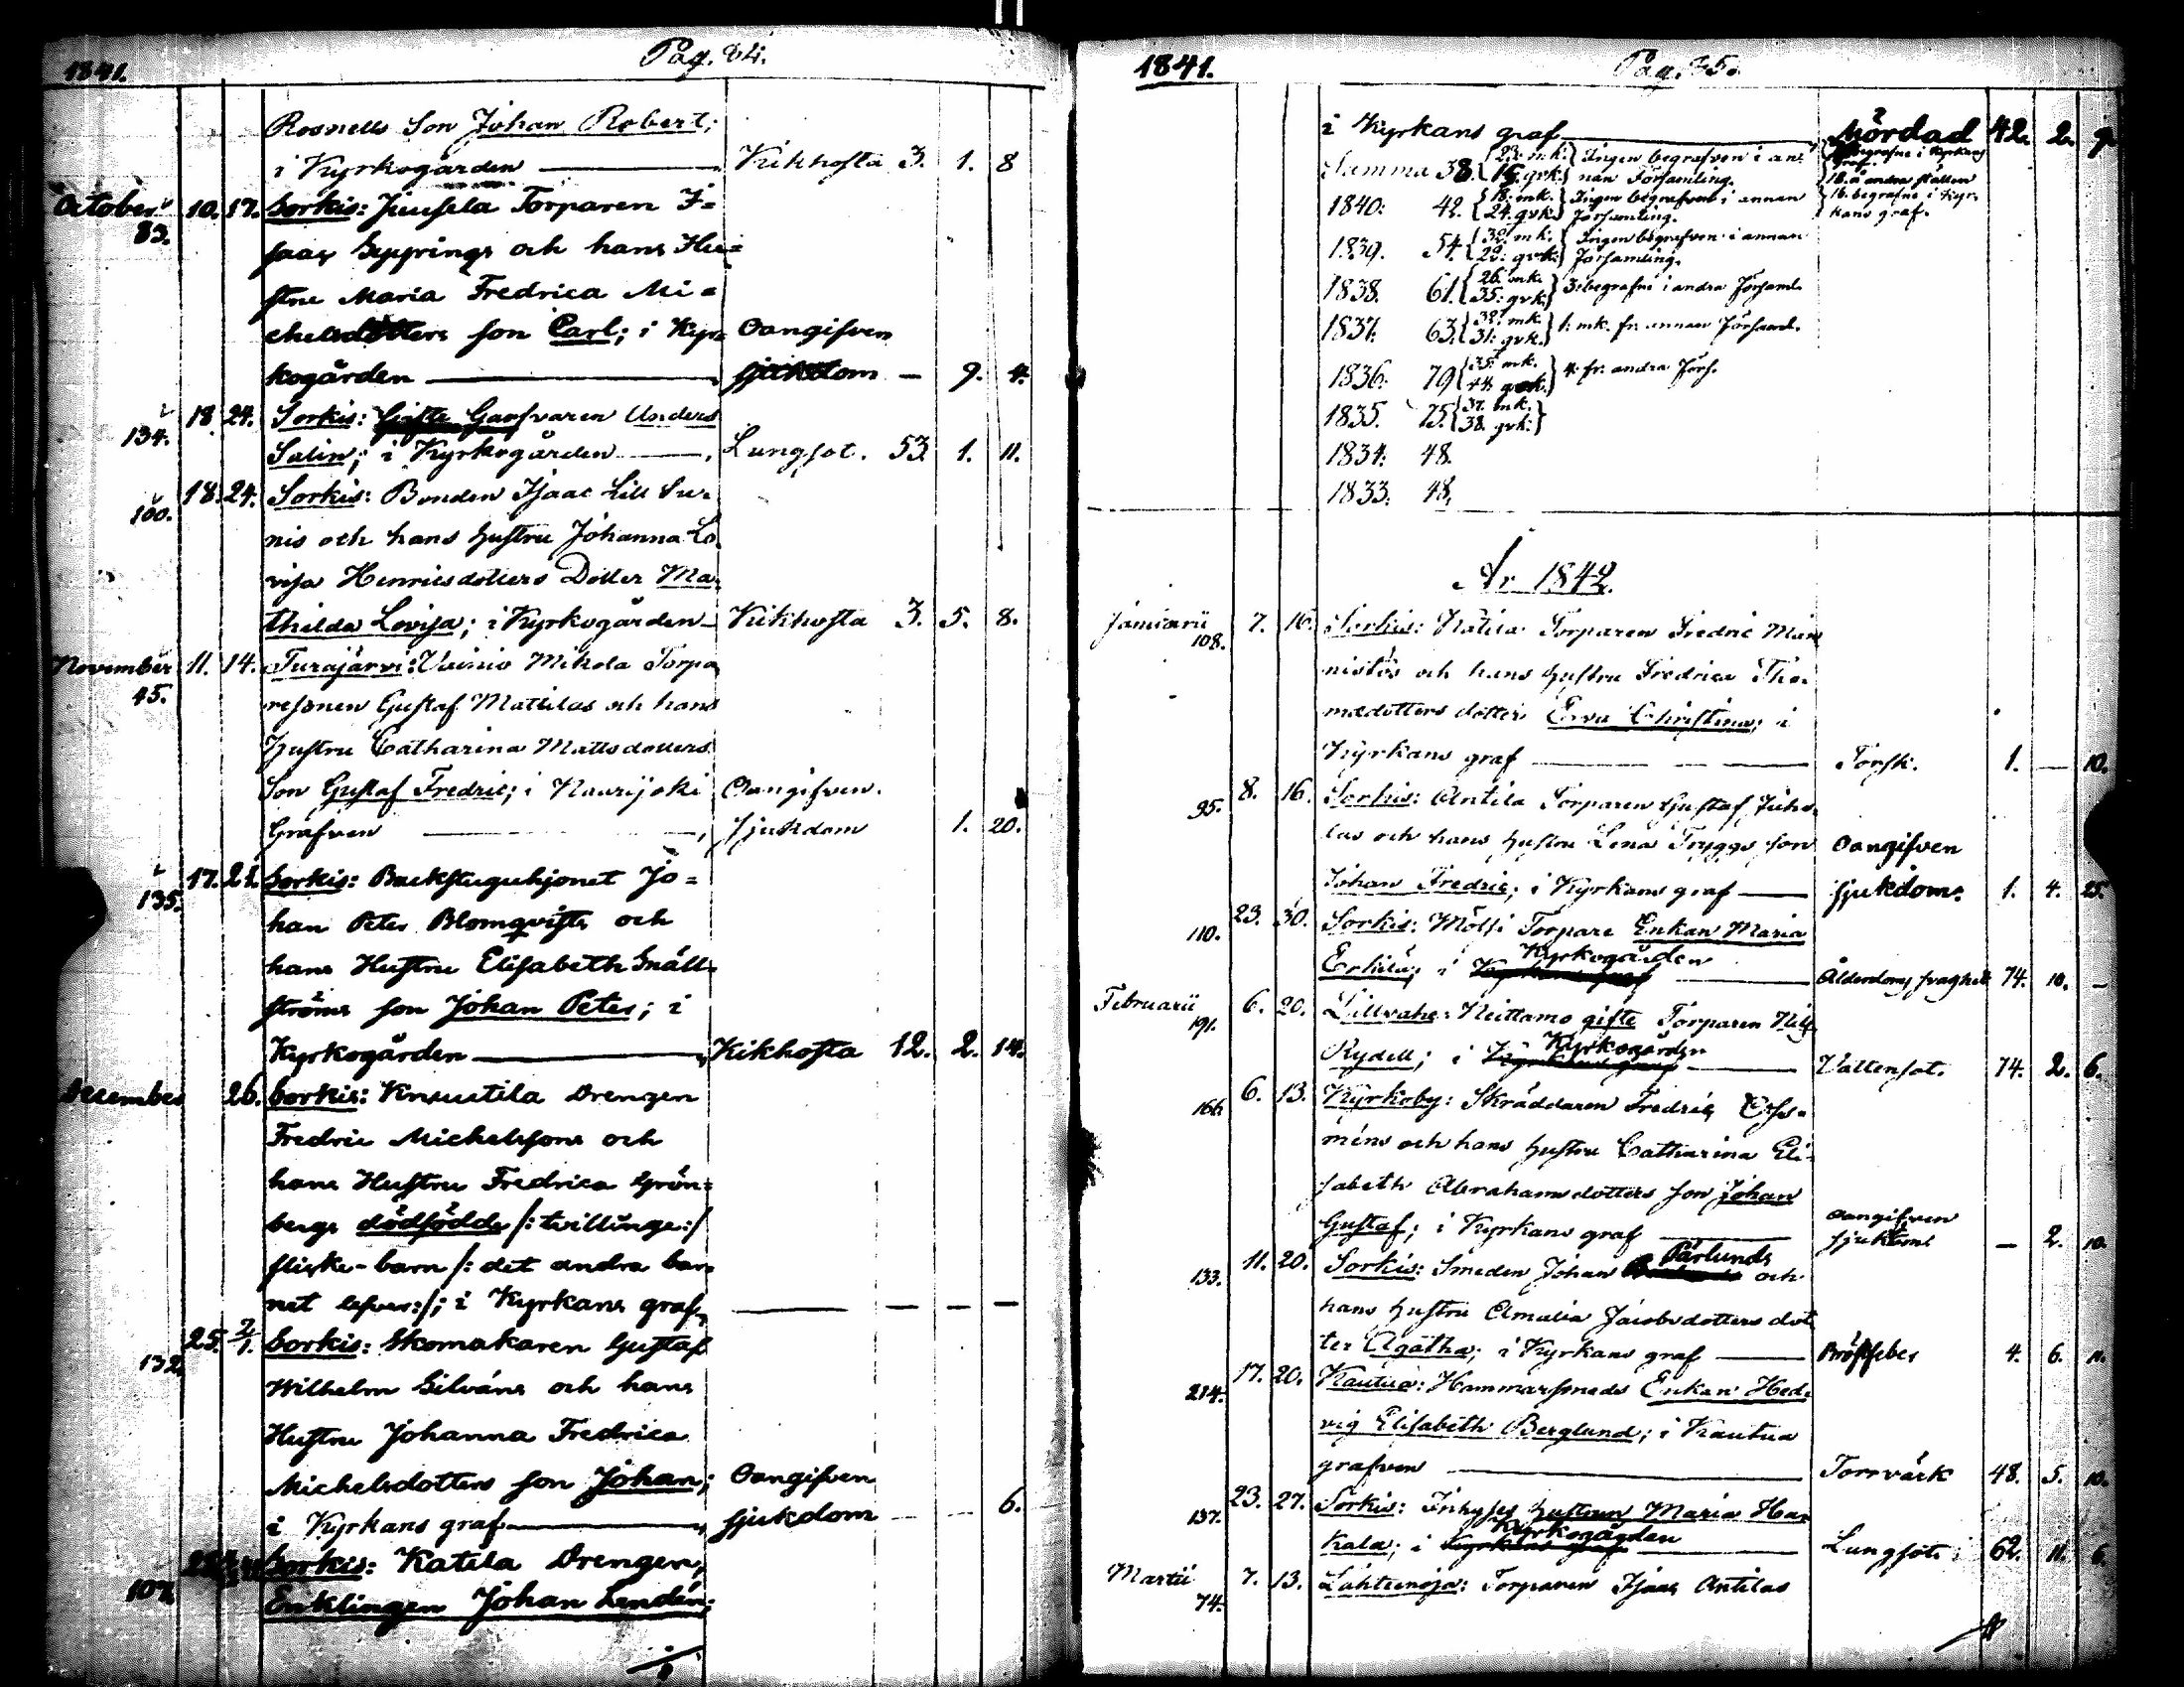 1841.
Pag. 84.
Rosnells Son Johan Robert;
i Kyrkogården — Kikhosta 3. 1. 8
October 10. 17. Sorkis: Juusela Torparen I=
83.
saac Sepprings och hans Hu=
stru Maria Fredrica Mi=
chelsdotters son Carl; i Kyr= Oangifven
kogården — sjukdom — 9. 4.
18 24. Sorkis: Gifte Garfvaren Anders
134.
Salin; i Kyrkogården — Lungsot. 53. 1. 11.
18. 24. Sorkis: Bonden Isaac Lill
100.
nis och hans hustru Johanna Lo
visa Henricsdotters Dotter Ma-
thilda Lovisa; i Kyrkogården — Kikhosta 3. 5. 8.
November 11. 14. Turajärvi: Vainio Mikola Torpa
45.
resonen Gustaf Mattilas och hans
hustru Catharina Mattsdotters
Son Gustaf Fredric; i Naarijoki Oangifven.
Grafven — sjukdom 1. 20.
17. 21. Sorkis: Backstuguhjonet Jo=
135.
han Peter Blomqvists och
hans Hustru Elisabeth Snäll-
ströms son Johan Peter; i
Kyrkogården — Kikhosta 12. 2. 14.
December 26. Sorkis: Knuutila Drengen
Fredric Michelssons och
hans Hustru Fredrica Grön=
bergs dödfödde /: tvillinge:/
flicke-barn /: det andra bar=
net lefver:/; i Kyrkans graf, — — — —
25. 2/1. Sorkis: Skomakaren Gustaf
132.
Wilhelm Silváns och hans
Hustru Johanna Fredrica
Michelsdotters son Johan; Oangifven
i Kyrkans graf — sjukdom 6.
Sorkis: Katila Drengen,
107.
Enklingen Johan Lendén;
i
1841.
Pag. 85.
i Kyrkans graf — Mördad 42. 2. 9.
Summa 38. { 23. mk. 15. qvk. } Ingen begrafven i an=
nan Församling.
begrafne i Kyrkans
graf.
18. å andra ställen
16. begrafne i Kyr-
kans graf.
1840: 42. { 18. mk. 24. qvk. } Ingen begrafven i annan
Församling.
1839. 54. { 32. mk. 23. qvk. } Ingen begrafven i annan
Församling.
1838. 61. { 26. mk. 35. qvk. } 3. begrafne i andra Församl.
1837. 63. { 32. mk. 31. qvk. } 1. mk. fr. annan Församl.
1836. 79 { 35. mk. 44. qvk. } 4. fr. andra Förs.
1835. 75. { 37. mk. 38. qvk. }
1834. 48.
1833. 48.
År 1842.
Januarii 7. 16. Sorkis: Katila Torparen Fredric Män
108.
nistös och hans hustru Fredrica Tho-
mædotters dotter Eva Christina; i
Kyrkans graf — Torsk. 1. — 10.
8. 16. Sorkis: Antila Torparen Gustaf Juho-
95.
las och hans hustru Lena Tryggs son Oangifven
Johan Fredric; i Kyrkans graf — sjukdom. 1. 4. 25.
23. 30. Sorkis: Mölsi Torpare Enkan Maria
110.
Erkilä; i Kyrkogården — Ålderdoms svaghet 74. 10. —
Februarii 6. 20. Lillvahe: Neittamo gifte Torparen Nils
191.
Rydell; i Kyrkogården — Vattensot. 74. 2. 6.
6. 13. Kyrkoby: Skräddaren Fredric
166.
méns och hans hustru Catharina Eli-
sabeth Abrahamsdotters son Johan
Gustaf; i Kyrkans graf — Oangifven sjukdom — 2. 10.
11. 20. Sorkis: Smeden Johan Pärlunds och
133.
hans hustru Amalia Jacobsdotters dot
ter Agatha; i Kyrkans graf — Bröstfeber 4. 6. 11.
17. 20. Kautua: Hammarsmeds Enkan Hed-
214.
vig Elisabeth Berglund; i Kautua
grafven — Torrvärk 48. 5. 10.
23. 27. Sorkis: Inhyses hustrun Maria Har
137.
kala; i Kyrkogården — Lungsot. 62. 11. 6.
Martii 7. 13. Lähteenoja: Torparen Isaac Antilas
74.